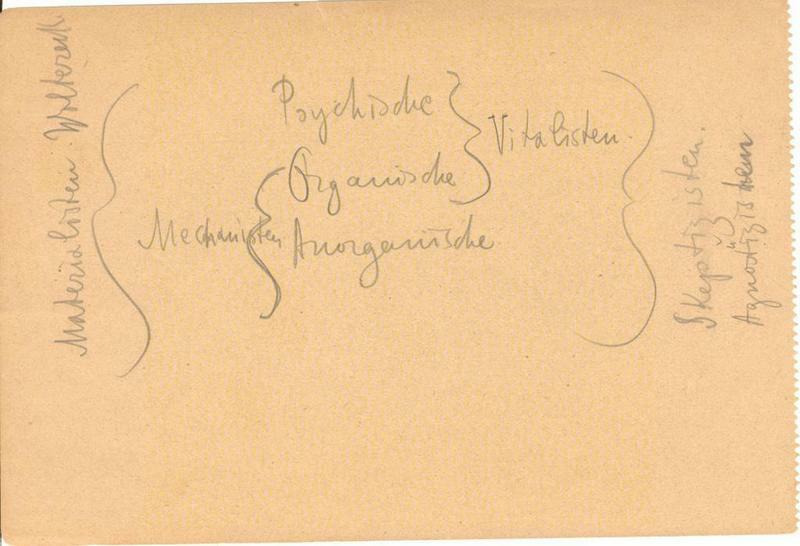 Materialisten. Woltereck
Psychische
Vitalisten.
Organische
Mechanisten
Anorganische
Skeptizisten.
Agnostizisten